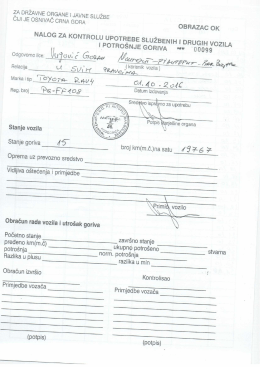 ZA DRŽAVNE ORGANE I JAVNE SLUŽBE
ČIJI JE OSNIVAČ CRNA GORA
OBRAZAC OK
NALOG ZA KONTROLU UPOTREBE SLUŽBENIH I DRUGIH VOZILA
I POTROŠNJE GORIVA 00099
Odgovorno lice Vujović Goran
Relacija U SVIM PRAVCIMA (korisnik vozila)
Marka i tip TOYOTA RAV4 01.10-2016
Reg. broj PG-FF108 Datum izdavanja
Potpis ovlašćene organa
Stanje vozila
Stanje goriva 15 broj km(m.č)na satu 19767
Oprema uz prevozno sredstvo
Vidljiva oštećenja i primjedbe
Primio vozilo
Obračun rada vozila i utrošak goriva
Početno stanje završno stanje
pređeno km(m.č) ukupno potrošeno stvarna
potrošnja norm. potrošnja
Razlika u plusu razlika u min
Obračun izvršio Kontrolisao
Primjedbe vozača Primjedbe vozača
(potpis) (potpis)